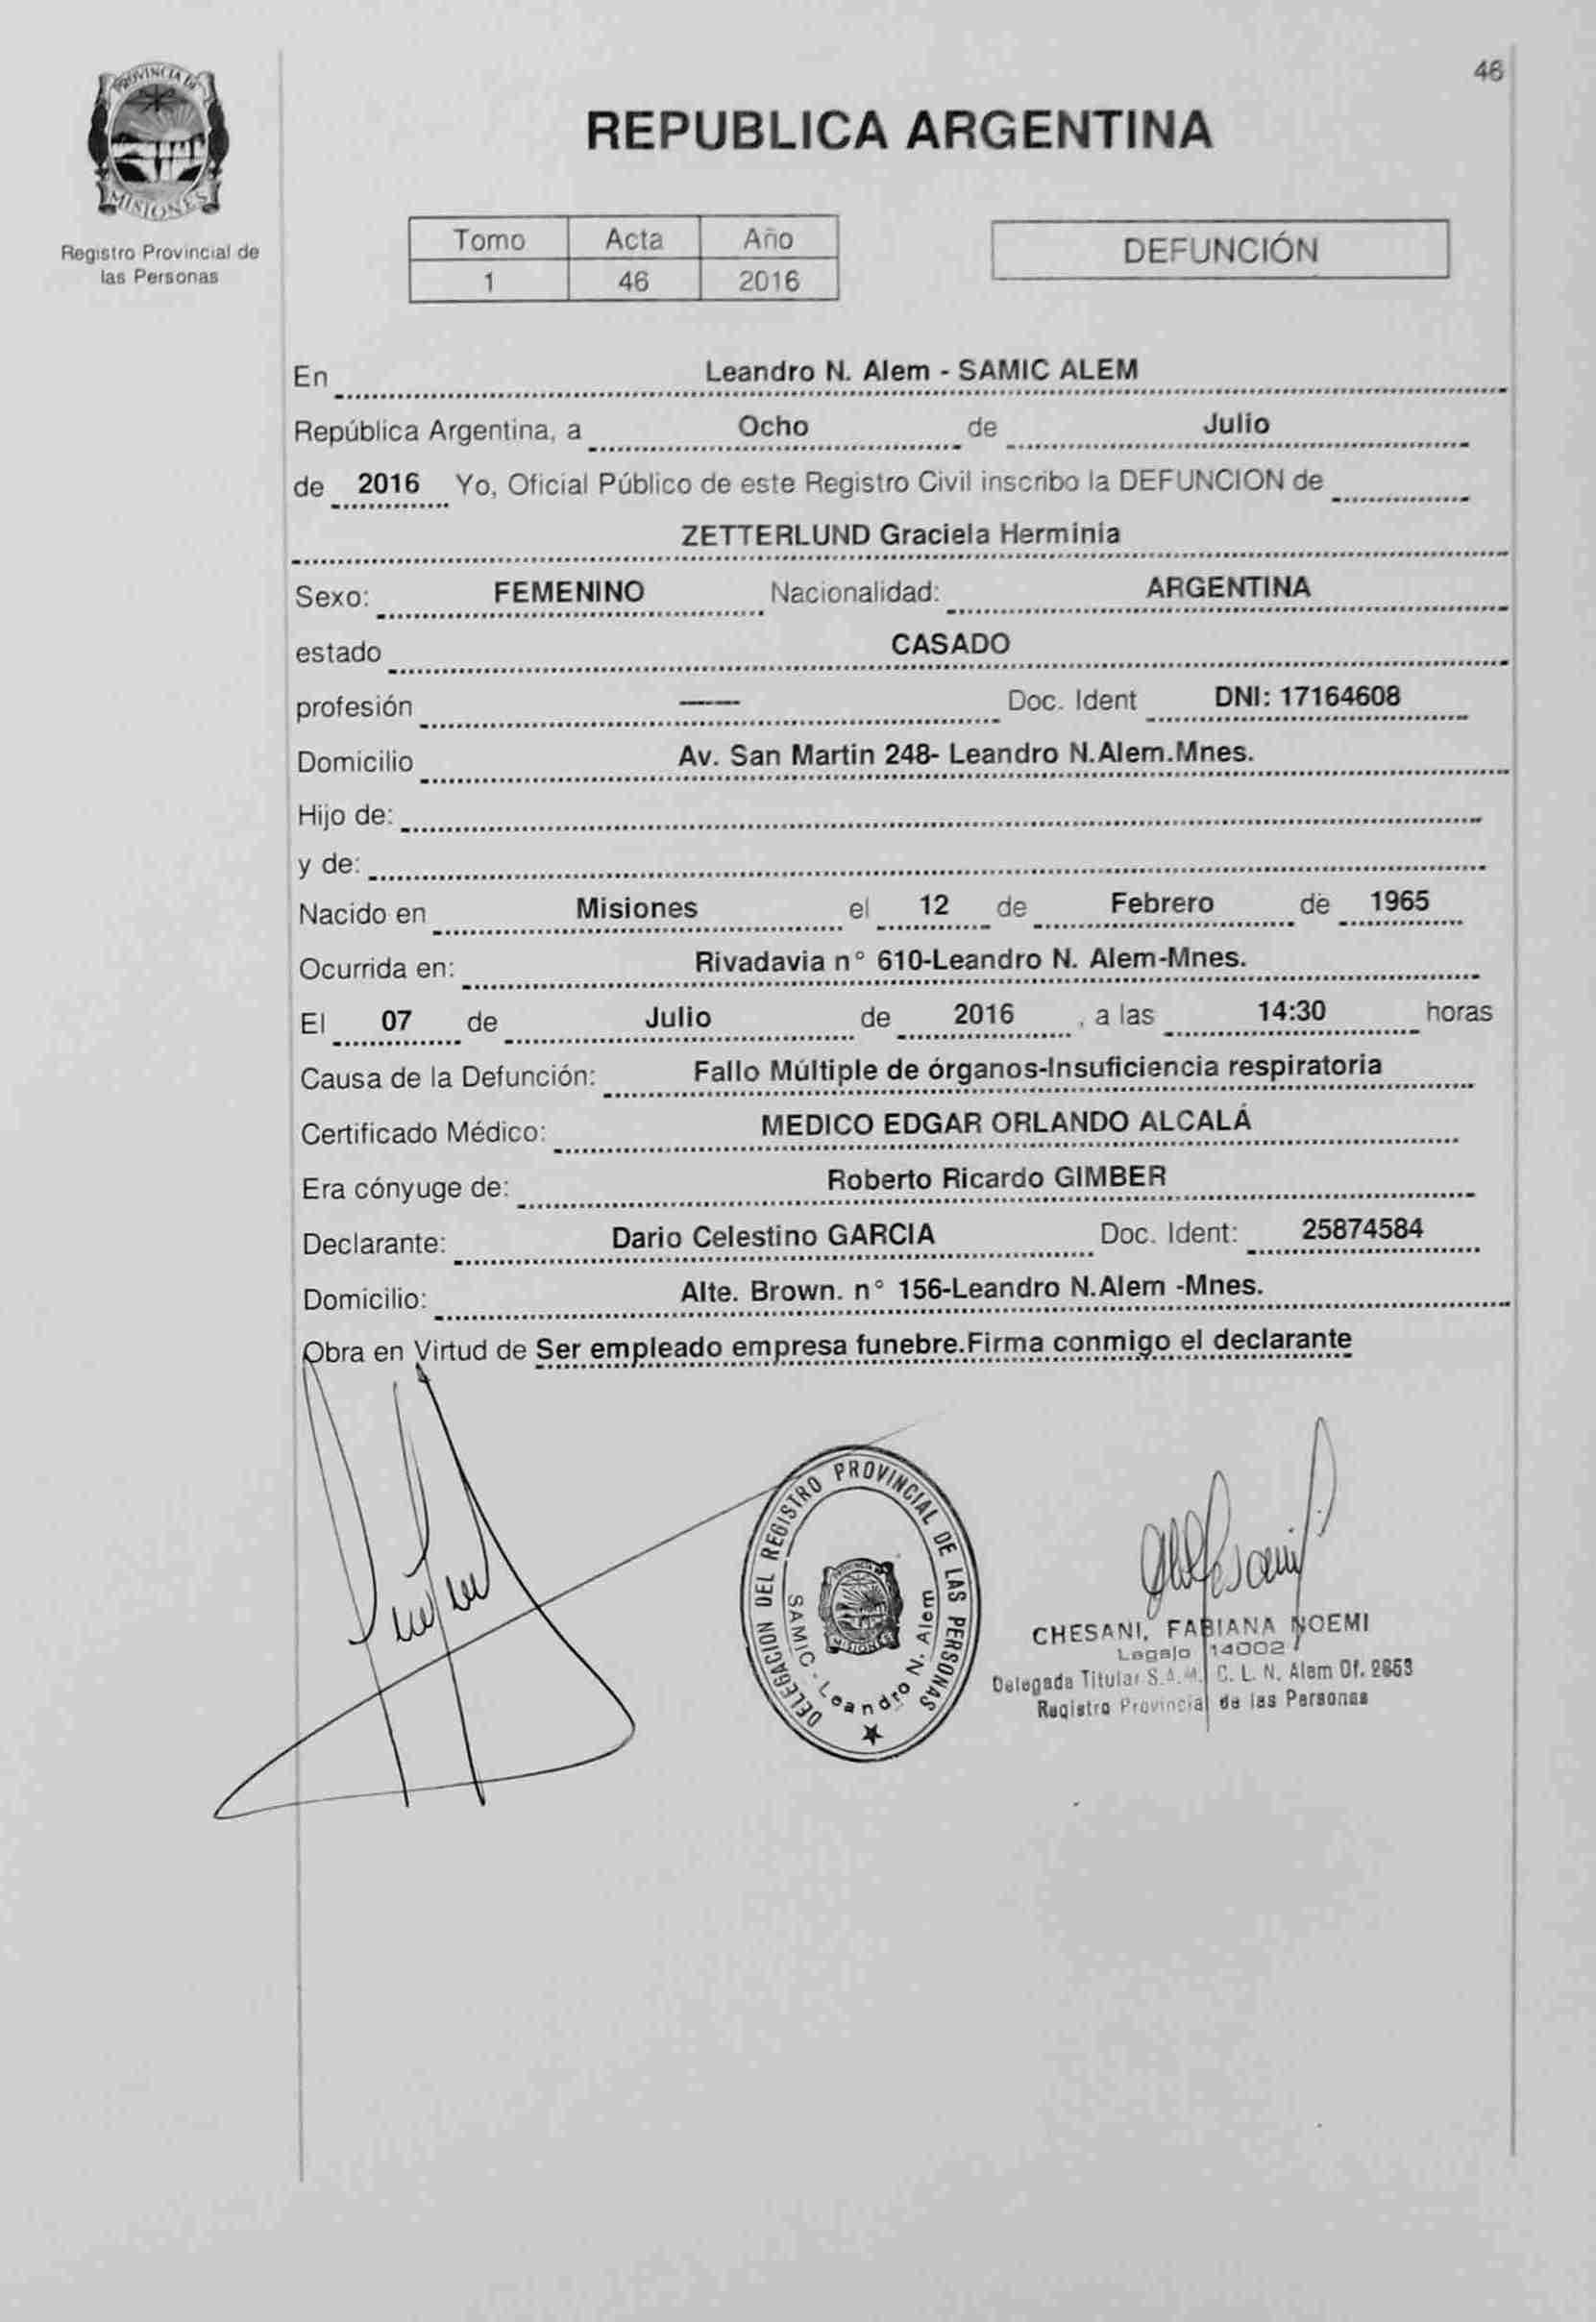 46
PROVINCIA DE
MISIONES
Registro Provincial de
las Personas
REPUBLICA ARGENTINA
Tomo Acta Año
1 46 2016
DEFUNCIÓN
En Leandro N. Alem - SAMIC ALEM
República Argentina, a Ocho de Julio
de 2016 Yo, Oficial Público de este Registro Civil inscribo la DEFUNCION de
ZETTERLUND Graciela Herminia
Sexo: FEMENINO Nacionalidad: ARGENTINA
estado CASADO
profesión —— Doc. Ident DNI: 17164608
Domicilio Av. San Martin 248- Leandro N.Alem.Mnes.
Hijo de:
y de:
Nacido en Misiones el 12 de Febrero de 1965
Ocurrida en: Rivadavia n° 610-Leandro N. Alem-Mnes.
El 07 de Julio de 2016 , a las 14:30 horas
Causa de la Defunción: Fallo Múltiple de órganos-Insuficiencia respiratoria
Certificado Médico: MEDICO EDGAR ORLANDO ALCALÁ
Era cónyuge de: Roberto Ricardo GIMBER
Declarante: Dario Celestino GARCIA Doc. Ident: 25874584
Domicilio: Alte. Brown. n° 156-Leandro N.Alem -Mnes.
Obra en Virtud de Ser empleado empresa funebre.Firma conmigo el declarante
DELEGACION DEL REGISTRO PROVINCIAL DE LAS PERSONAS
SAMIC - Leandro N. Alem
MISIONES
CHESANI, FABIANA NOEMI
Legajo 14002
Delegada Titular S.A.M. C. L. N. Alem Of. 2653
Registro Provincial de las Personas